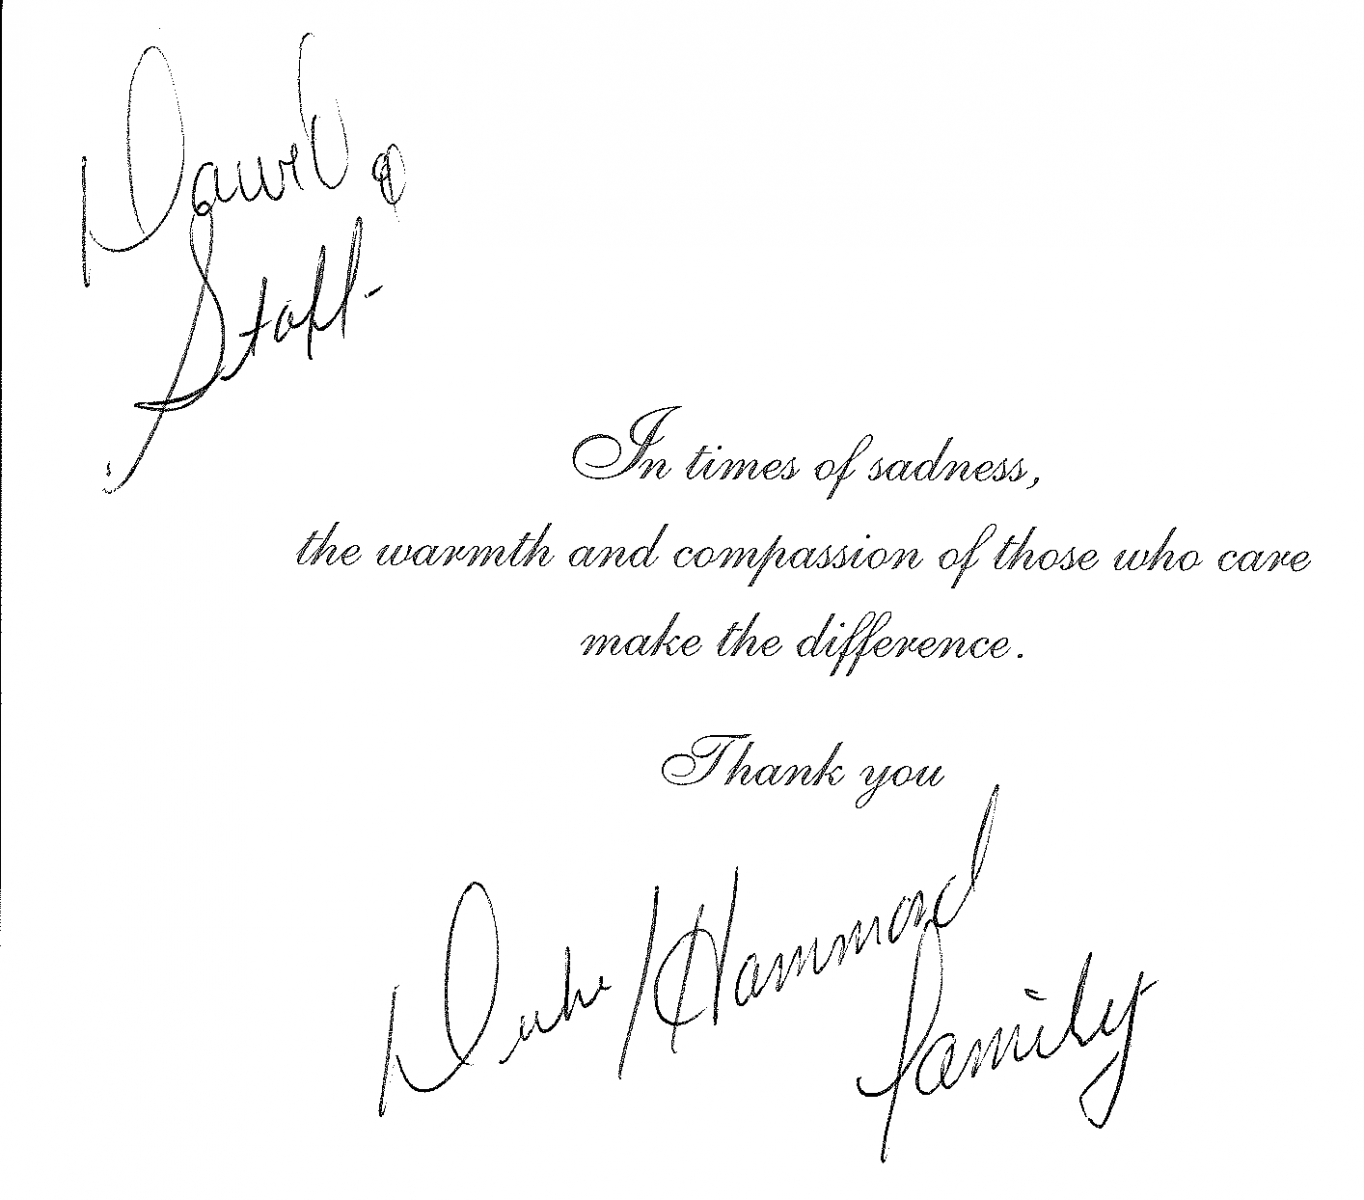 David &
Staff-
In times of sadness,
the warmth and compassion of those who care
make the difference.
Thank you
Duke/Hammond
family